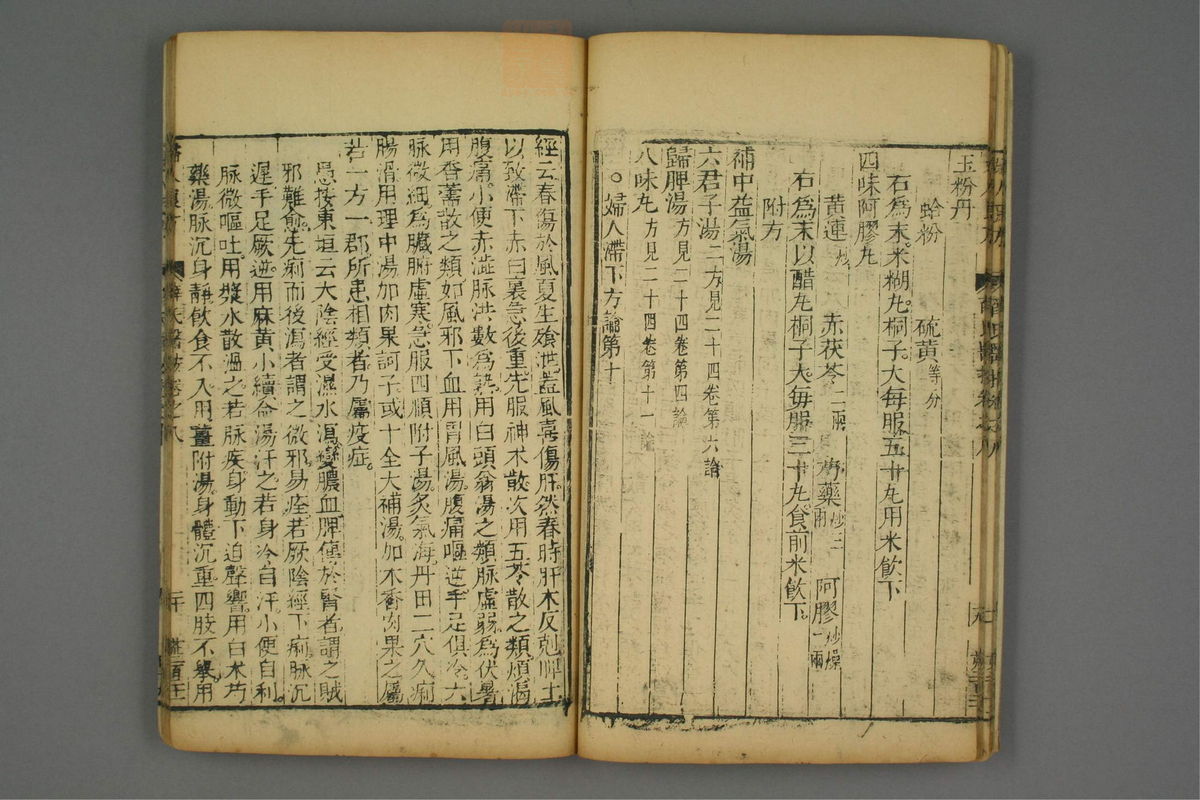 玉粉丹
蛤粉 硫黃等分
右為末米糊丸桐子大每服五十丸用米飲下
四味阿膠丸
黃連炒 赤茯苓二兩 芍藥炒三兩 阿膠炒燥一兩
右為末以醋丸桐子大每服三十丸食前米飲下
附方
補中益氣湯
六君子湯二方見二十四卷第六論
歸脾湯方見二十四卷第四論
八味丸方見二十四卷第十一論
○婦人滯下方論第十
經云春傷於風夏生飱泄蓋風喜傷肝然春時肝木反剋脾土
以致滯下赤白裏急後重先服神术散次用五苓散之類煩渴
腹痛小便赤澁脉洪數為熱用白頭翁湯之類脉虛弱為伏暑
用香薷散之類如風邪下血用胃風湯腹痛嘔逆手足俱冷六
脉微細為臟腑虛寒急服四順附子湯炙氣海丹田二穴久痢
腸滑用理中湯加肉果訶子或十全大補湯加木香肉果之屬
若一方一郡所患相類者乃屬疫症
愚按東垣云太陰經受濕水瀉變膿血脾傳於腎者謂之賊
邪難愈先痢而後瀉者謂之微邪易痊若厥陰經下痢脉沉
遲手足厥逆用麻黃小續命湯汗之若身冷自汗小便自利
脉微嘔吐用漿水散温之若脉疾身動下迫聲響用白术芍
藥湯脉沉身靜飲食不入用薑附湯身體沉重四肢不舉用